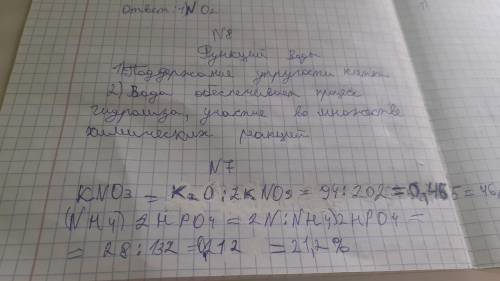 Ответ: NO2
N8
Функции воды
1) Поддержание упругости клетки
2) Вода обеспечивает процес
гидролиза, участие во множестве
химических реакций
N7
KNO3 = K2O : 2KNO3 = 94 : 202 = 0,465 = 46,
(NH4) 2HPO4 = 2N : NH4)2HPO4 =
= 28 : 132 = 0,212 = 21,2%